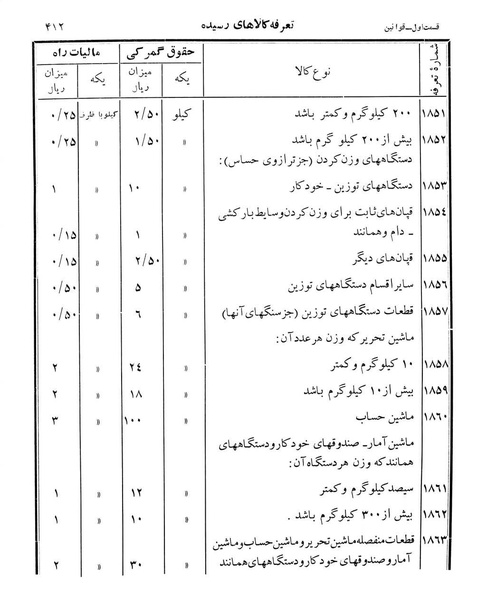 قسمت اول ــ قوانین تعرفه کالاهای رسیده ۴۱۲
شمارهٔ تعرفه نوع کالا حقوق گمرکی مالیات راه
یکه میزان ریال یکه میزان ریال
۱۸۵۱ ۲۰۰ کیلوگرم و کمتر باشد کیلو ۲/۵۰ کیلو با ظرف ۰/۲۵
۱۸۵۲ بیش از ۲۰۰ کیلو گرم باشد » ۱/۵۰ » ۰/۲۵
دستگاههای وزن کردن (جز ترازوی حساس):
۱۸۵۳ دستگاههای توزین - خودکار » ۱۰ » ۱
۱۸۵۴ قپانهای ثابت برای وزن کردن وسایط بارکشی
ـ دام و همانند » ۱ » ۰/۱۵
۱۸۵۵ قپانهای دیگر » ۲/۵۰ » ۰/۱۵
۱۸۵۶ سایر اقسام دستگاههای توزین » ۵ » ۰/۵۰
۱۸۵۷ قطعات دستگاههای توزین (جز سنگهای آنها) » ۶ » ۰/۵۰
ماشین تحریر که وزن هر عدد آن:
۱۸۵۸ ۱۰ کیلوگرم و کمتر » ۲۴ » ۲
۱۸۵۹ بیش از ۱۰ کیلوگرم باشد » ۱۸ » ۲
۱۸۶۰ ماشین حساب » ۱۰۰ » ۳
ماشین آمار - صندوقهای خودکار و دستگاههای
همانند که وزن هر دستگاه آن:
۱۸۶۱ سیصد کیلوگرم و کمتر » ۱۲ » ۱
۱۸۶۲ بیش از ۳۰۰ کیلوگرم باشد . » ۱۰ » ۱
۱۸۶۳ قطعات منفصله ماشین تحریر و ماشین حساب و ماشین
آمار و صندوقهای خودکار و دستگاههای همانند » ۳۰ » ۲